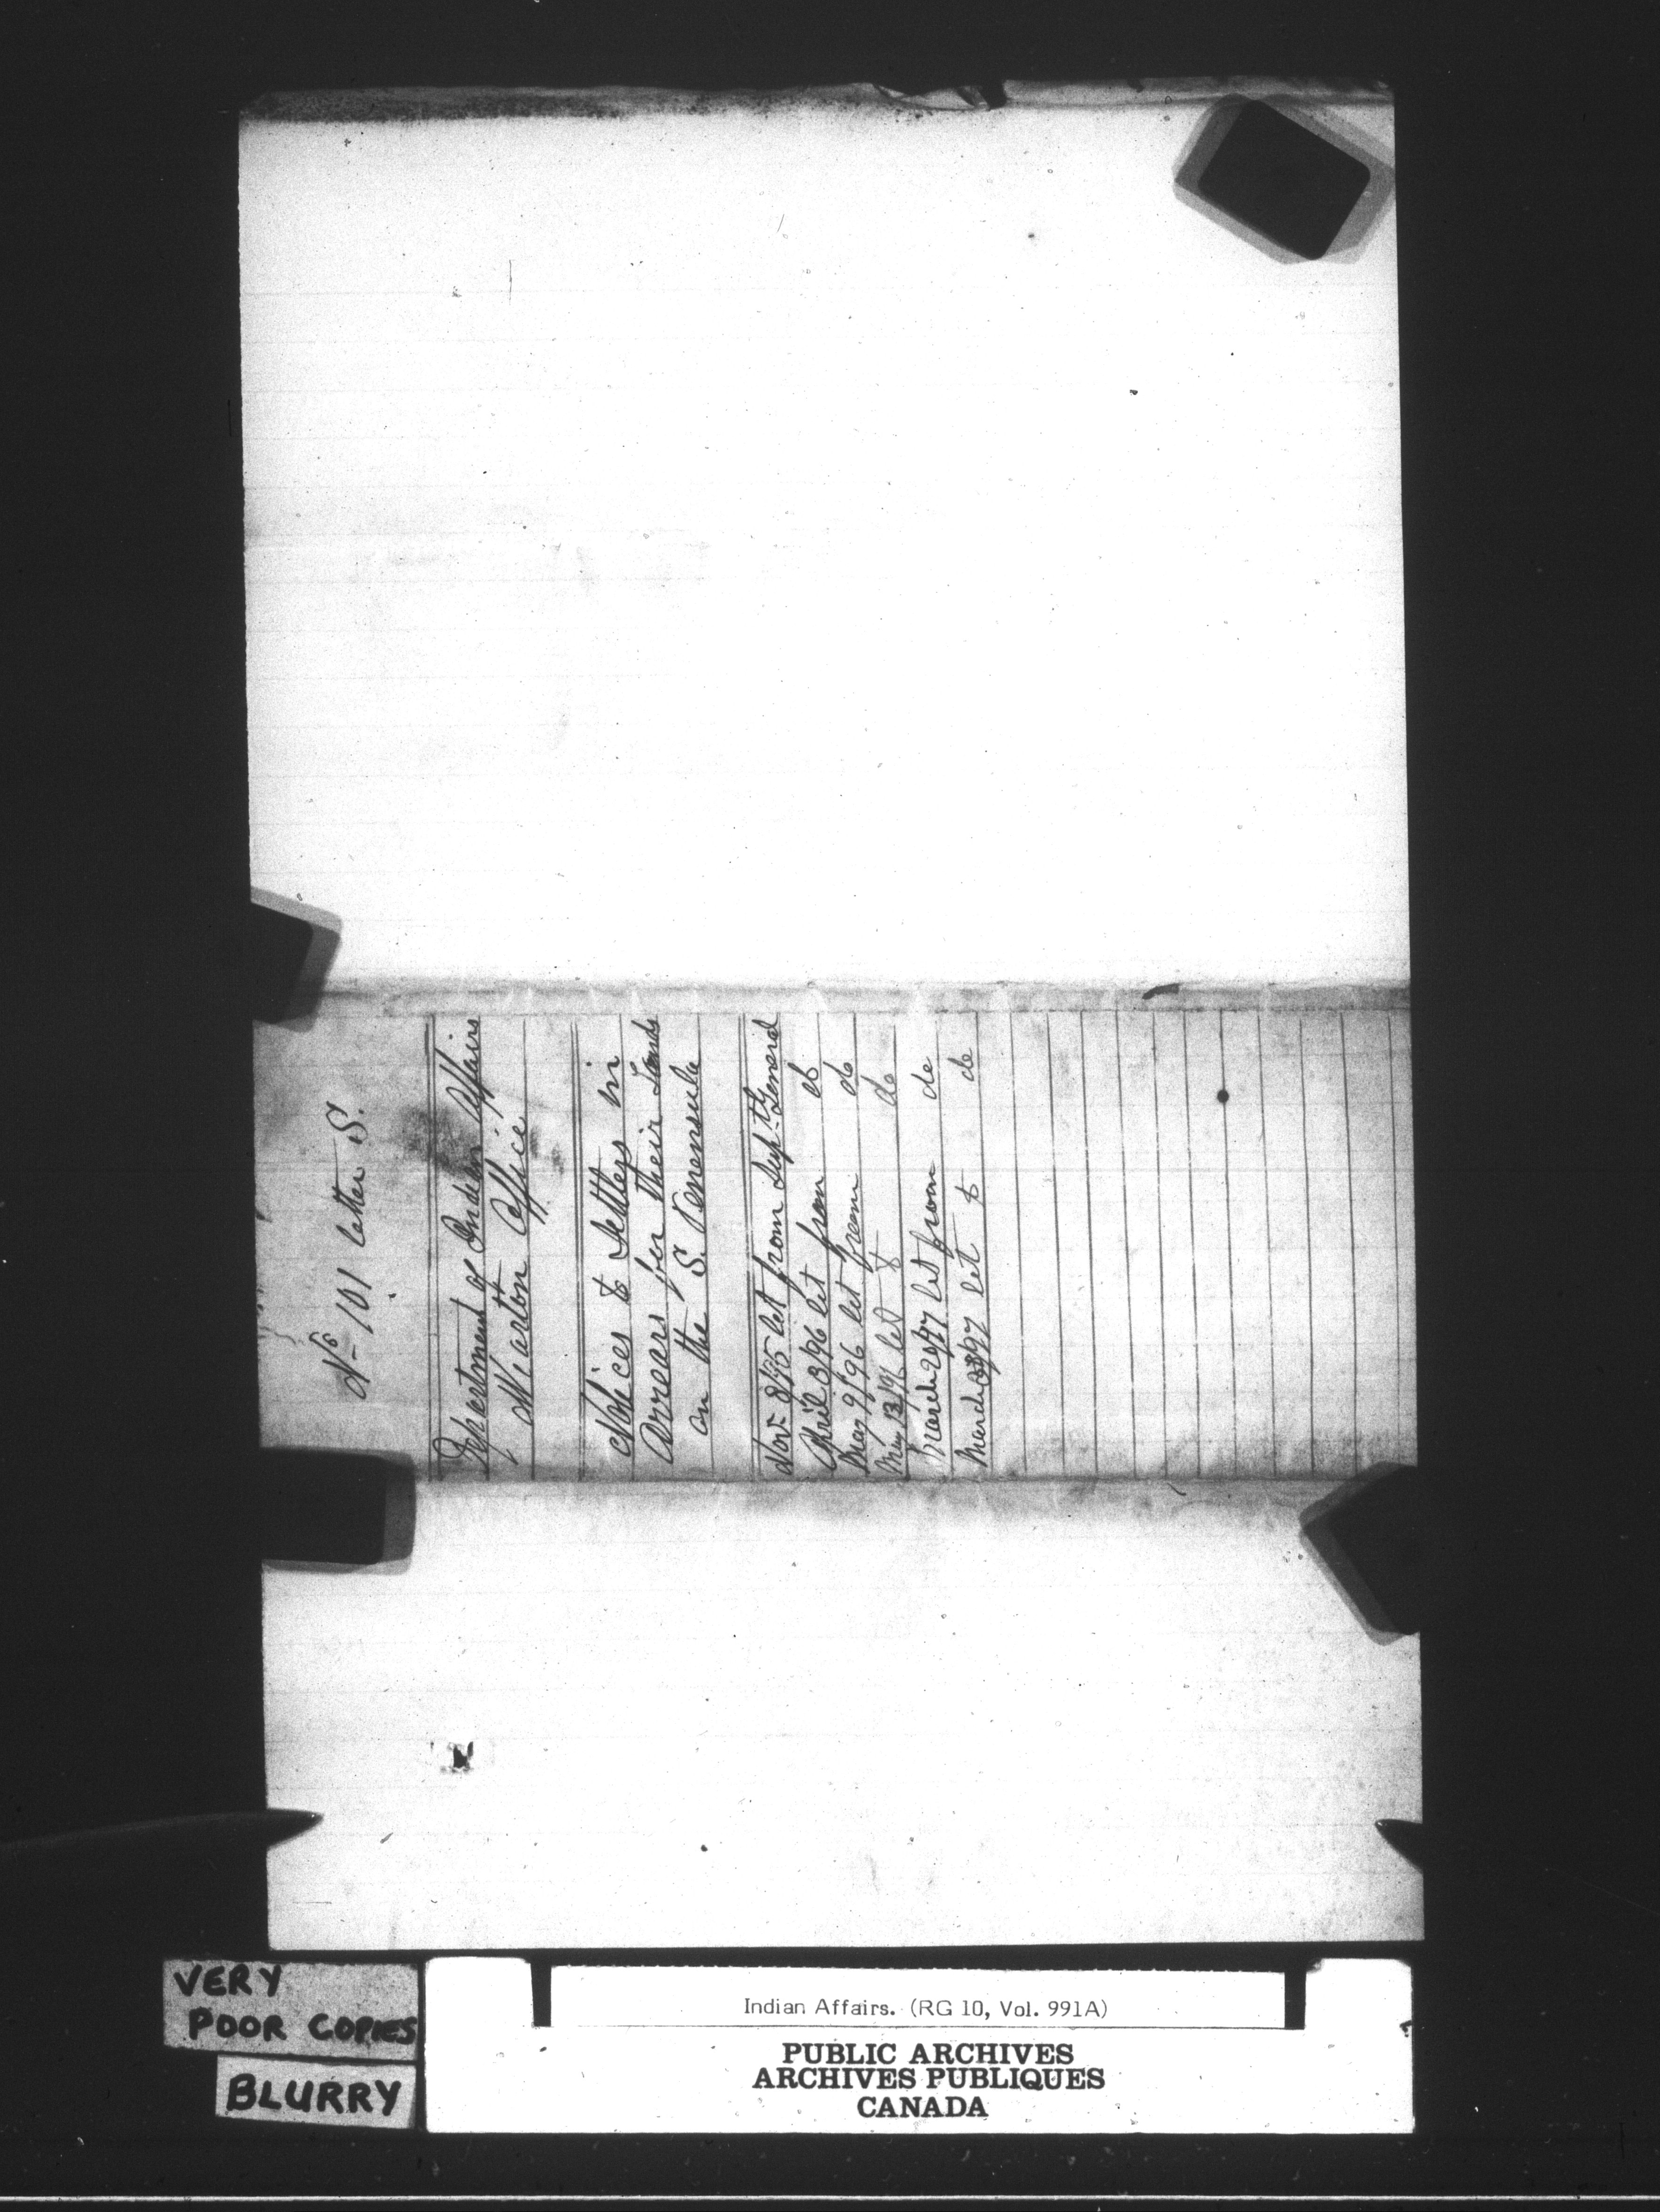 No 101 letter S.
Department of Indian Affairs
Wiarton Office
Notices to Settlers in
Arrears for their Lands
on the S. Penensula
Nov 8/95 let from Supt General
April 3/96 let from do
May 9/96 let from do
May 13/96 let to do
March 20/97 let from de
March /97 let to de
VERY
POOR COPIES
BLURRY
Indian Affairs. (RG 10, Vol. 991A)
PUBLIC ARCHIVES
ARCHIVES PUBLIQUES
CANADA